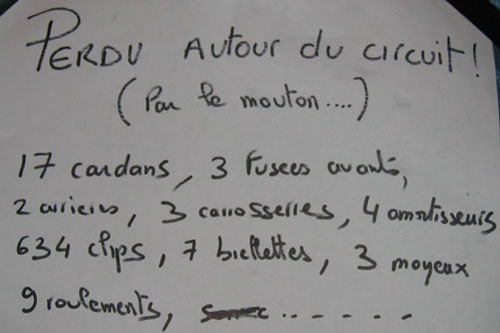 PERDU AUTOUR DU CIRCUIT !
(Par le mouton....)
17 cardans, 3 fusees avants,
2 arrieres, 3 carrosseries, 4 amortisseurs
634 clips, 7 biellettes, 3 moyeux
9 roulements, ..........